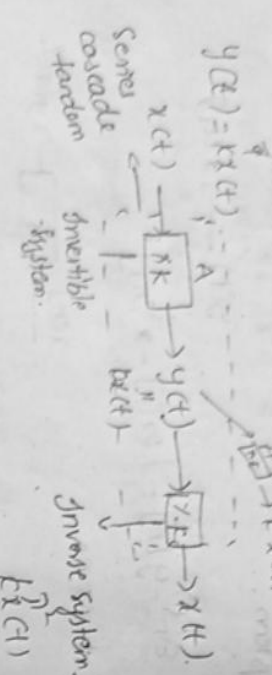 y(t) = kx(t)
A
x(t) → [×k] → y(t) → [ ] → x(t).
"
kx(t)
Series
cascade
tandem
Invertible
System.
Inverse System.